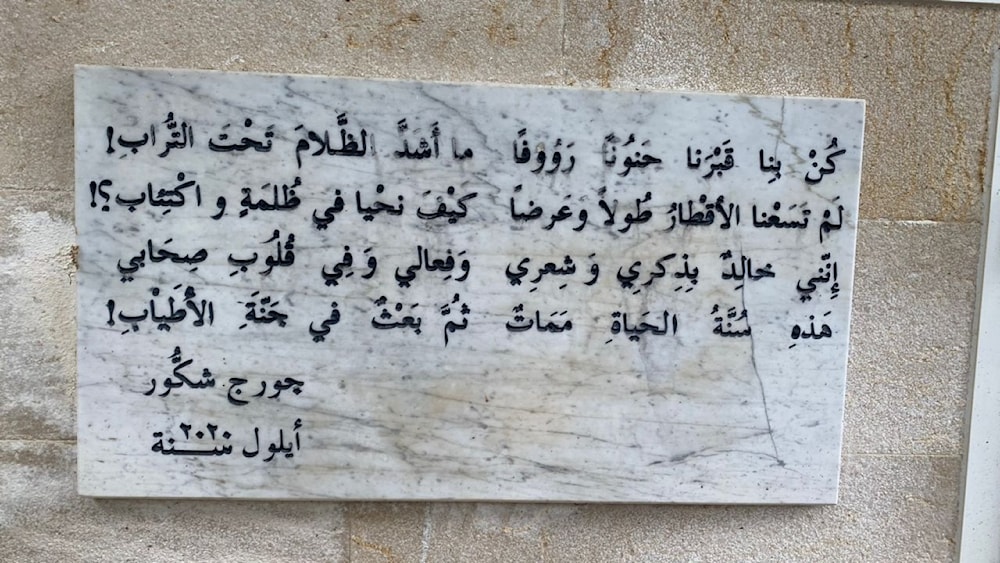 كُنْ بِنا قَبْرَنا حَنُونًا رَؤُوفًا ما أَشَدَّ الظَّلامَ تَحْتَ التُّرابِ!
لَمْ تَسَعْنا الأقْطارُ طُولاً وَعَرضاً كَيْفَ نحْيا في ظُلمَةٍ و اكْتِئاب؟!
إِنَّني خالِدٌ بِذِكرِي وَ شِعرِي وَفِعالي وَ فِي قُلُوبِ صِحَابي
هَذهِ سُنَّةُ الحَياةِ مَمَاتٌ ثُمَّ بَعْثٌ في جَنَّةِ الأَطْيابِ!
جورج شكُّور
أيلول سنة ٢٠٢٠